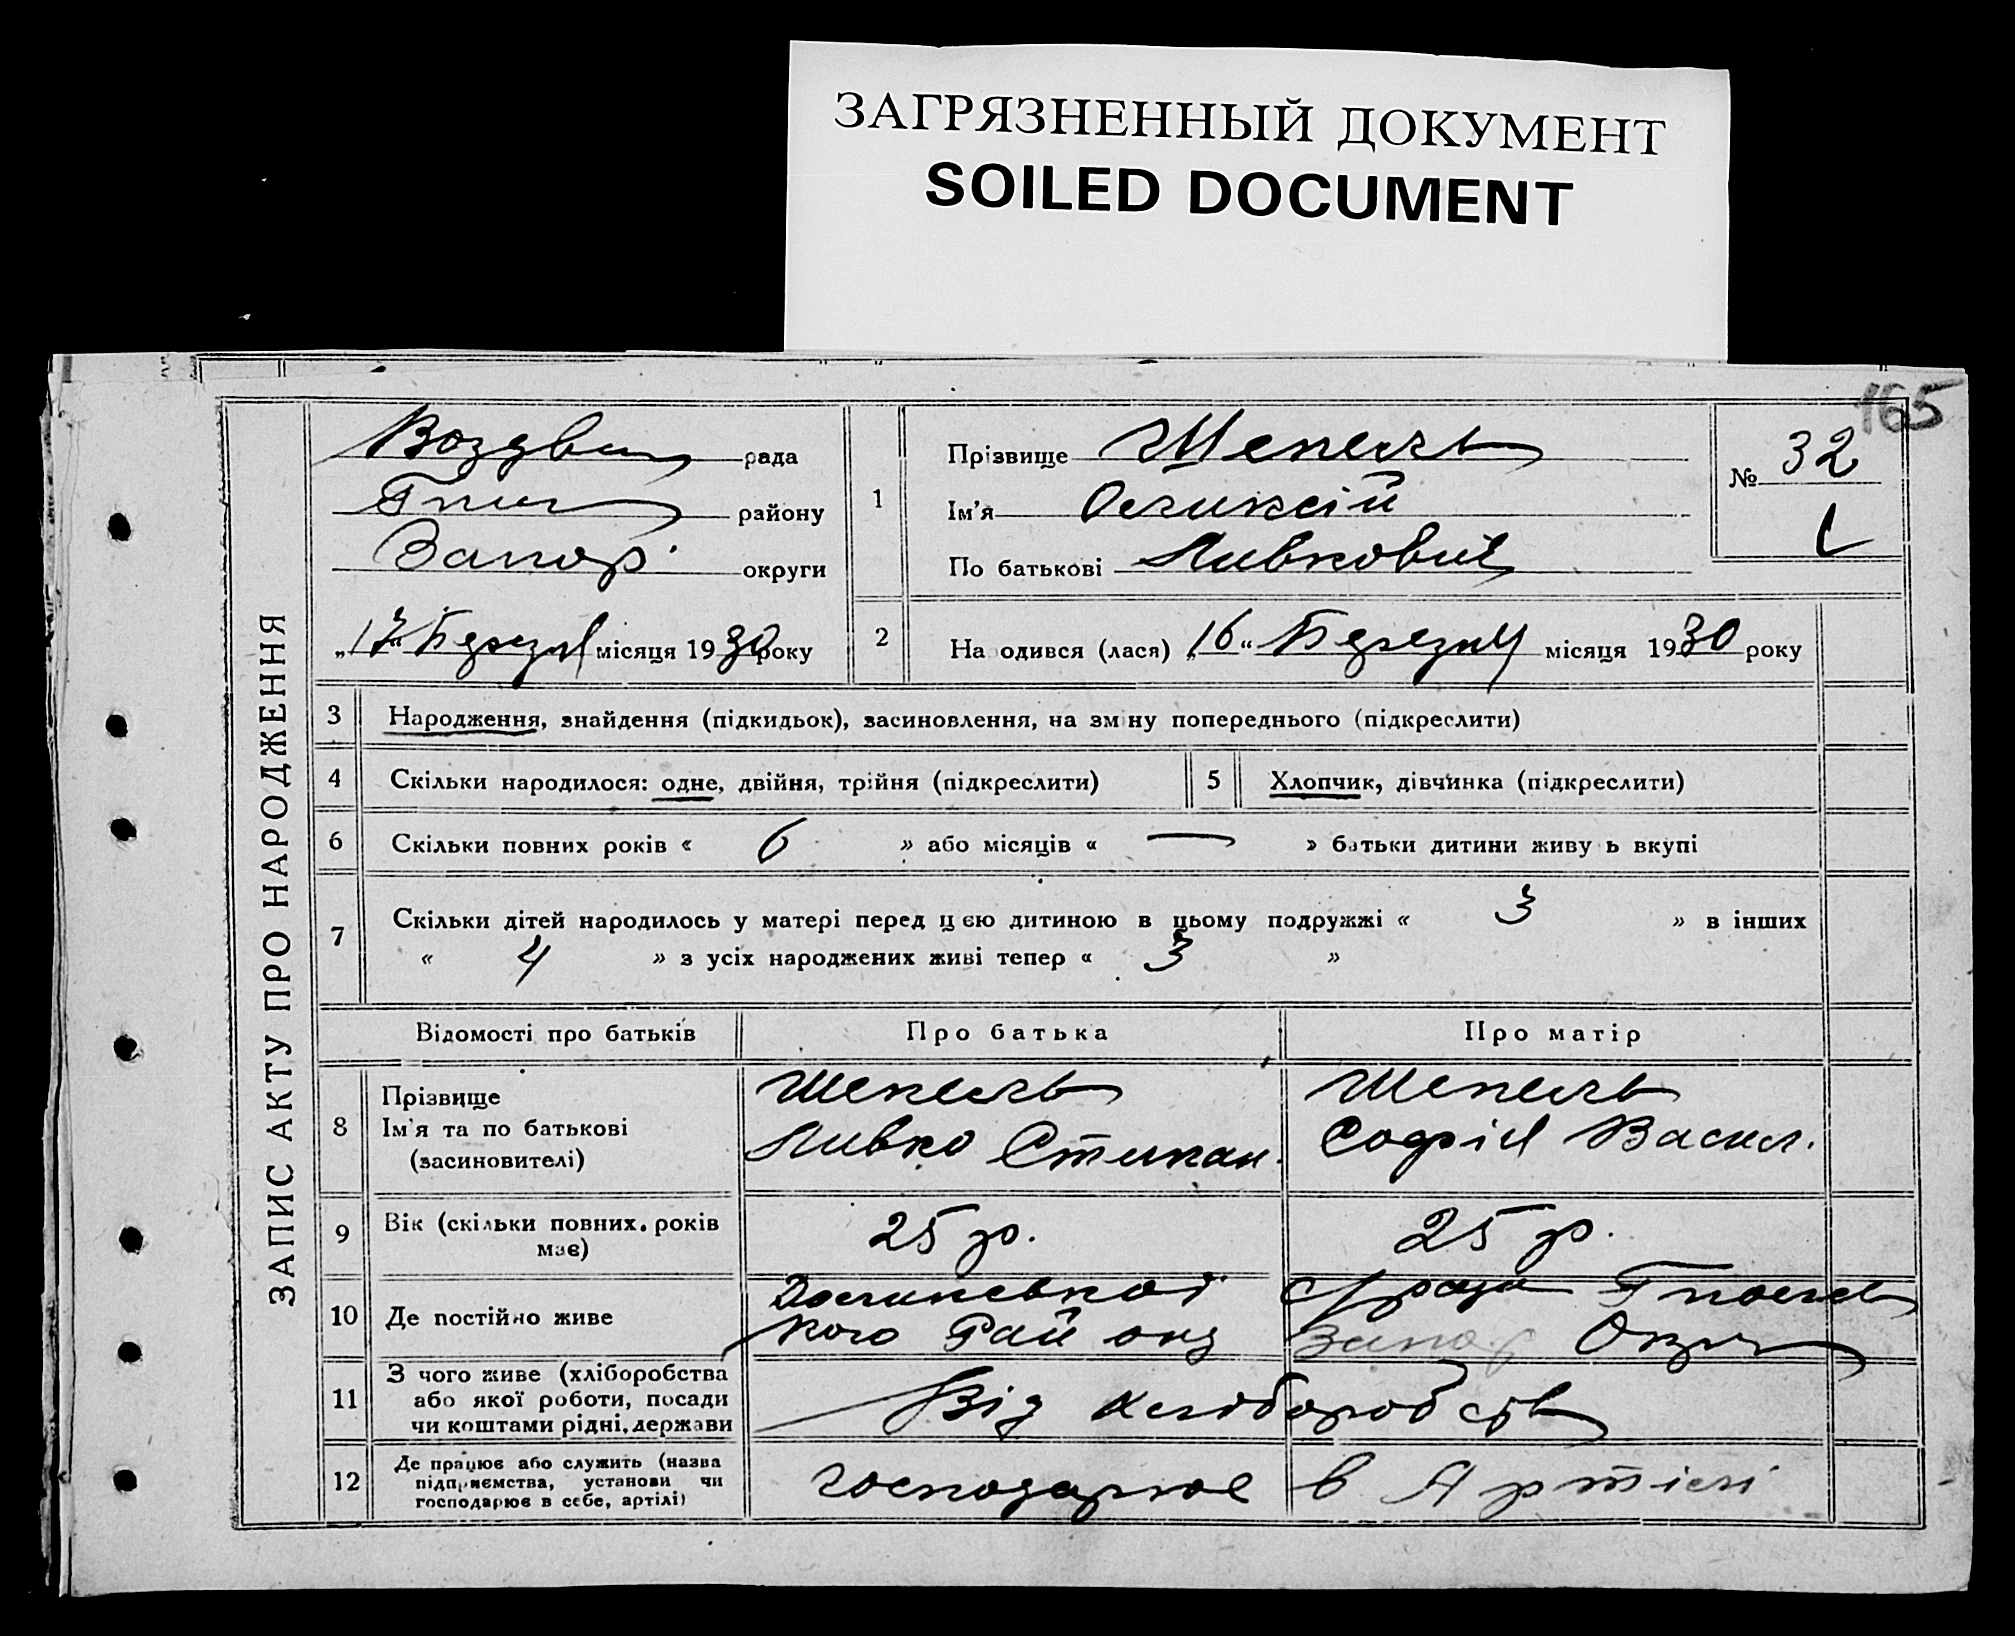 ЗАГРЯЗНЕННЫЙ ДОКУМЕНТ
SOILED DOCUMENT
165
ЗАПИС АКТУ ПРО НАРОДЖЕННЯ
Воздви рада
району
Запор. округи
„17“ Березня місяця 1930 року
1
Прізвище Шепель
Ім'я Олексій
По батькові Левкович
№ 32
2 На одився (лася) „16“ Березня місяця 1930 року
3 Народження, знайдення (підкидьок), засиновлення, на зміну попереднього (підкреслити)
4 Скільки народилося: одне, двійня, трійня (підкреслити)
5 Хлопчик, дівчинка (підкреслити)
6 Скільки повних років « 6 » або місяців « — » батьки дитини живу ь вкупі
7 Скільки дітей народилось у матері перед цєю дитиною в цьому подружжі « 3 » в інших
« 4 » з усіх народжених живі тепер « 3 »
Відомості про батьків Про батька Про матір
8 Прізвище
Ім'я та по батькові
(засиновителі)
Шепель
Левко Степан.
Шепель
Софія Васил.
9 Вік (скільки повних років
має)
25 р.
25 р.
10 Де постійно живе
с/рада
кого Району Запор Окру
11 З чого живе (хліборобства
або якої роботи, посади
чи коштами рідні, держави
Від хліборобств
12 Де працює або служить (назва
підприємства, установи чи
господарює в себе, артілі)
господарює в Артілі